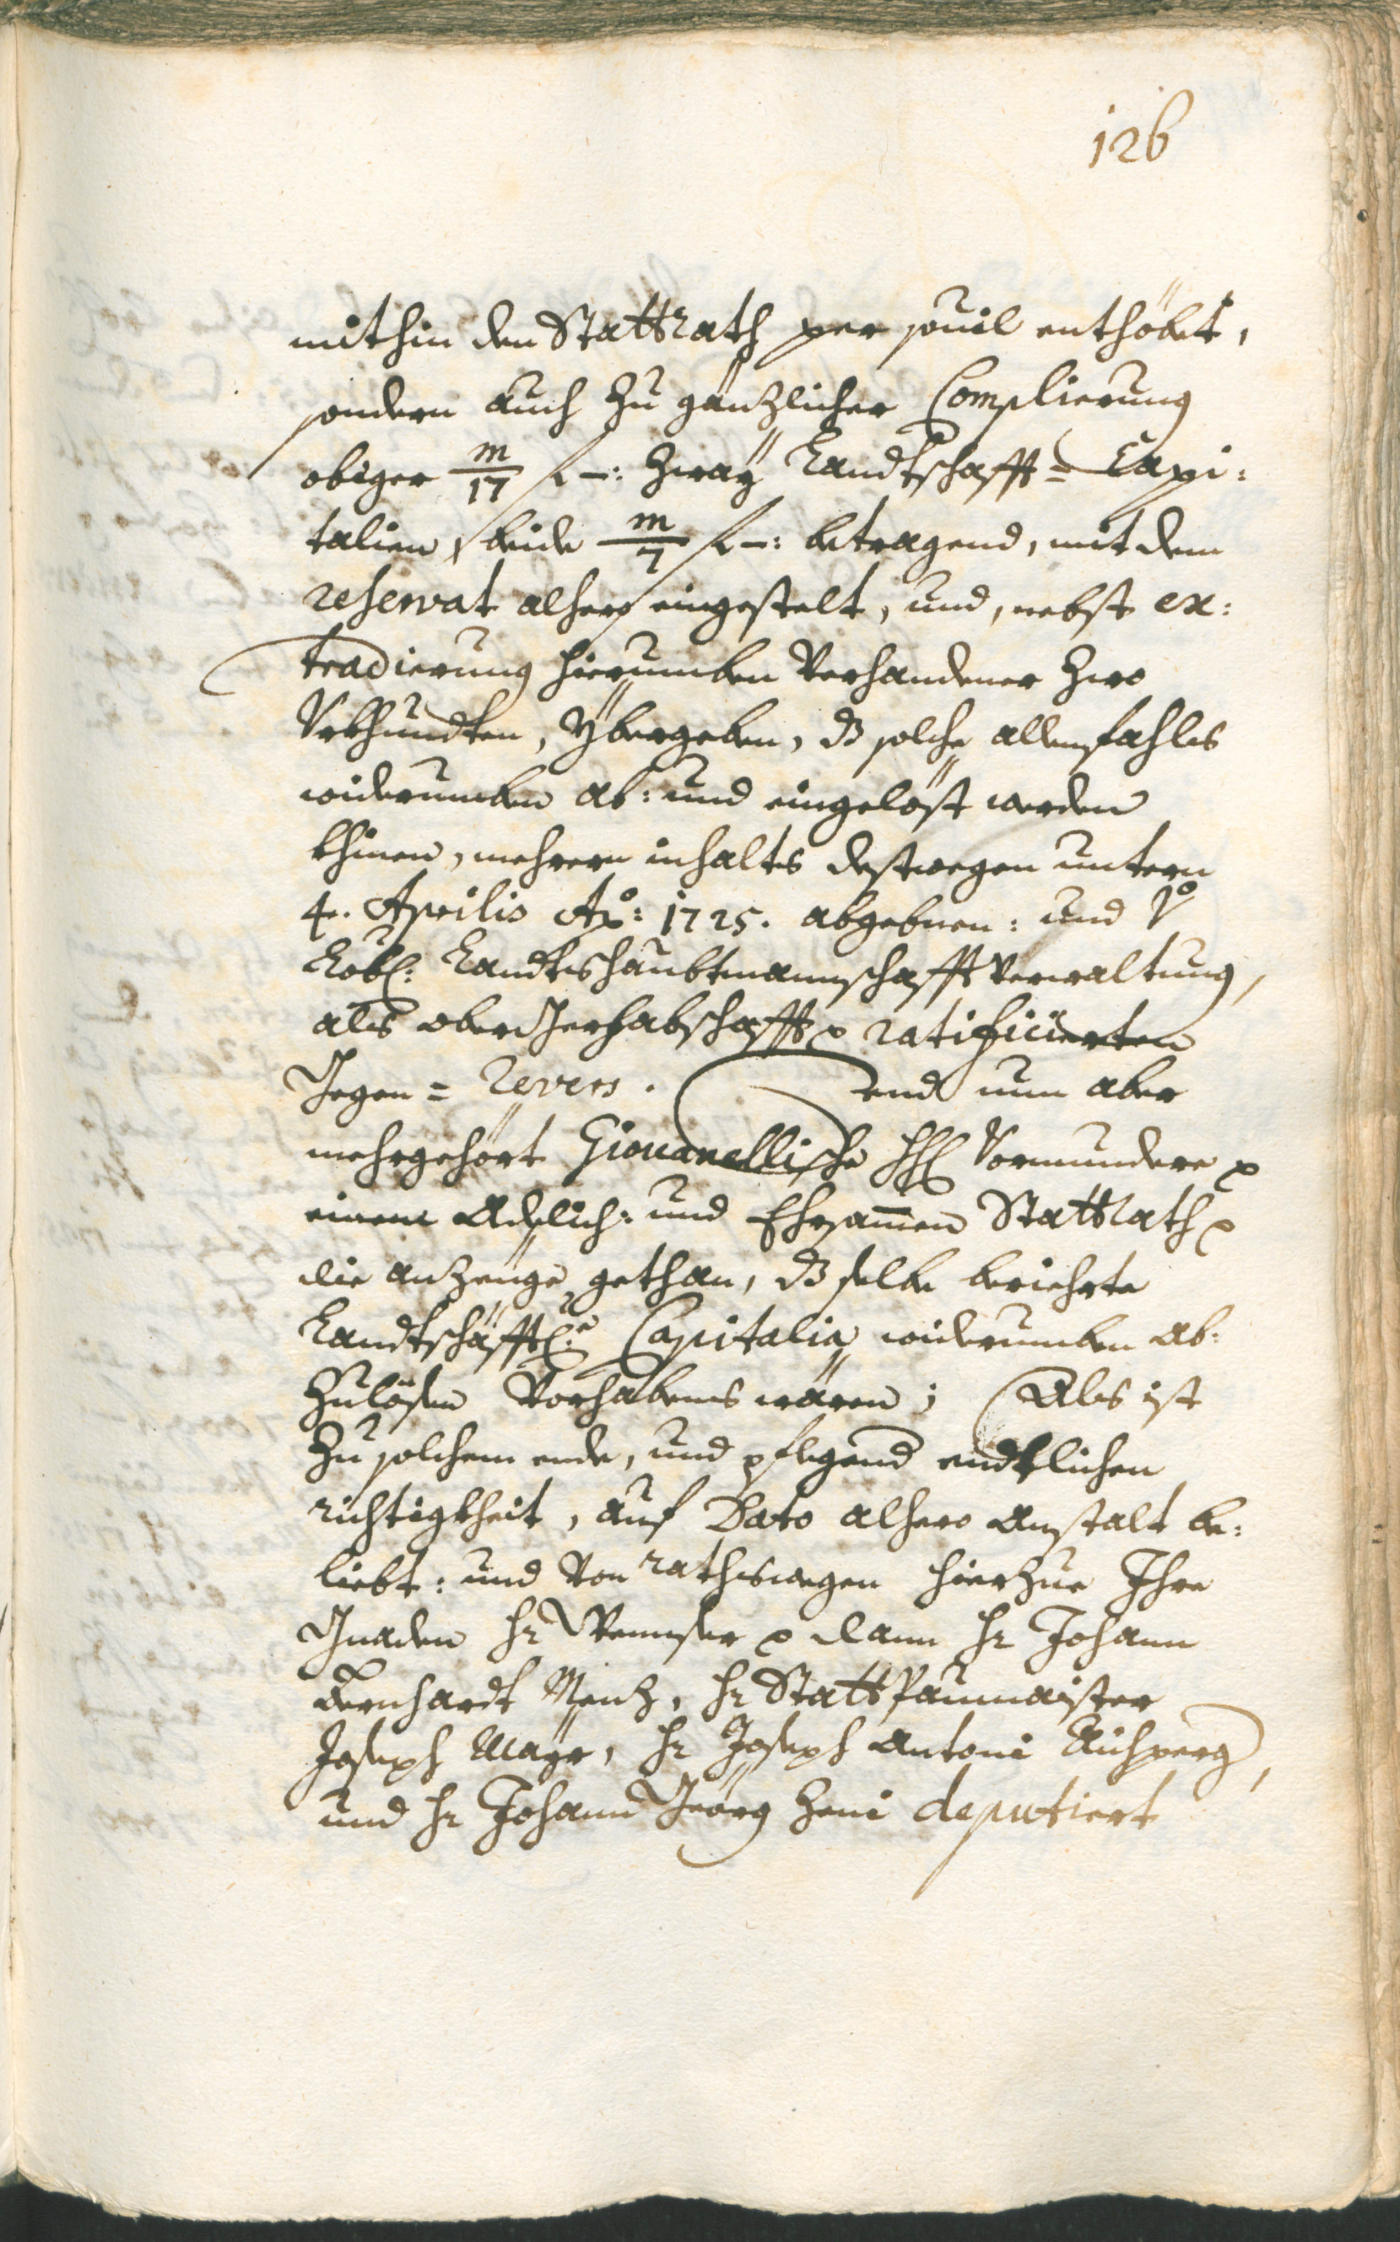 126
mithin den Stattrath per souil enthöbt,
sondern auch zu gänzlicher Complierung
obiger m/17 f –: zway Landtschafft= Capi:
talien, beide m/7 f –: betragend, mit dem
reservat alhero eingestelt, und, nebst ex:
tradierung hierumben verhandener zwo
Vrkhundten, ybergeben, dz solche allenfahls
widerumben ab: und eingelöst werden
khinen, mehrern inhalts destwegen untern
4. Aprilis Ao: 1725. abgebnen: und
Löbl: Landtshaubtmannschafft Verwaltung,
als ober Gerhabschafft ratificierten
Gegen= revers. und nun aber
mehrgehört Giouanellische HH Vormundere
einem Adelich: und Ehrsamen Stattrath
die anzeuge gethan, dz selbe beriehrte
Landtschäfftl: Capitalia widerumben ab:
zulösen Vorhabens wären; Als ist
zu solchem ende, und pflegend endtlichen
richtigkheit, auf Dato alhero Anstalt be:
liebt: und von rathswegen hierzue Ihre
Gnaden Hr Wenser dann Hr Johann
Bernhardt Menz, Hr Statt Paumaister
Joseph Mayr, Hr Joseph Antoni Aichperg,
und Hr Johann Georg Zeni deputiert